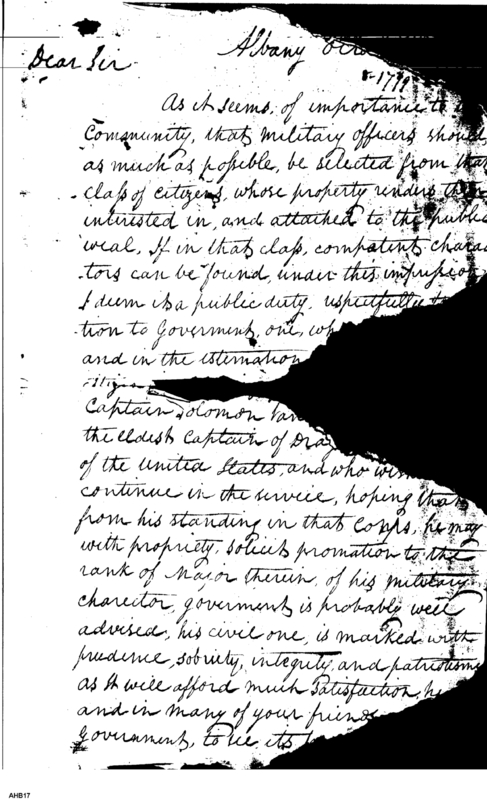 Albany
Dear Sir
1799
As it seems, of importance to
Community, that military officers should
as much as possible, be selected from that
class of citizens, whose property renders them
interested in, and attached to the public
weal, If in that class, competent charac
-tors can be found, under this impression
I deem it a public duty, respectfully to
tion to Goverment, one, wh
and in the estimation
Captain Solomon Van
the eldest Captain of Drag
of the United States, and who
continue in the service, hoping that
from his standing in that Corps, he may
with propriety, solicit promation to the
rank of Major therein, of his military
charector, goverment is probably well
advised, his civil one, is marked with
prudence, sobriety, integrity, and patriotism
as It will afford much Satisfaction, he
and in many of your friends
Government, to see its
AHB17